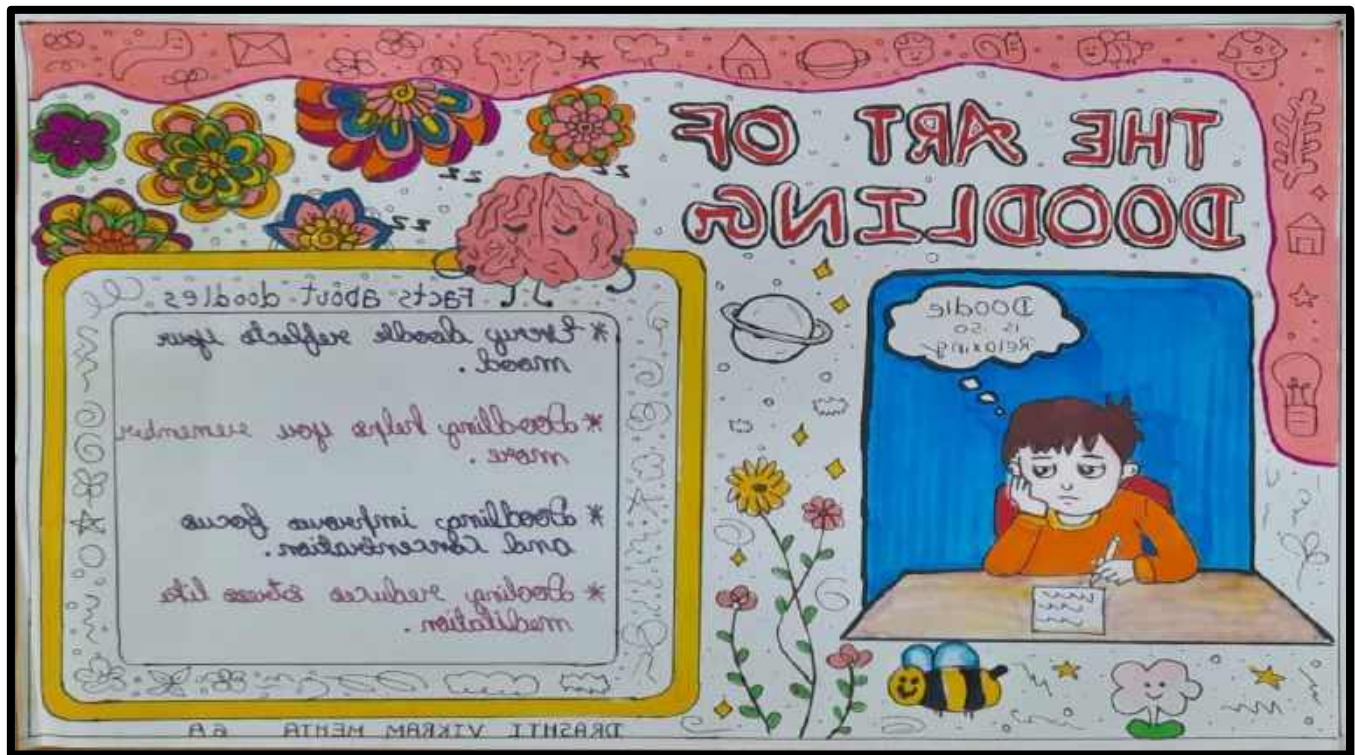 THE ART OF
DOODLING
Doodle
is so
Relaxing
zz
zz
zz
Facts about doodles
* Every doodle reflects your
mood.
* Doodling helps you remember
more.
* Doodling improves focus
and concentration.
* Dooling reduces stress like
meditation.
DRASHTI VIKRAM MEHTA 6A